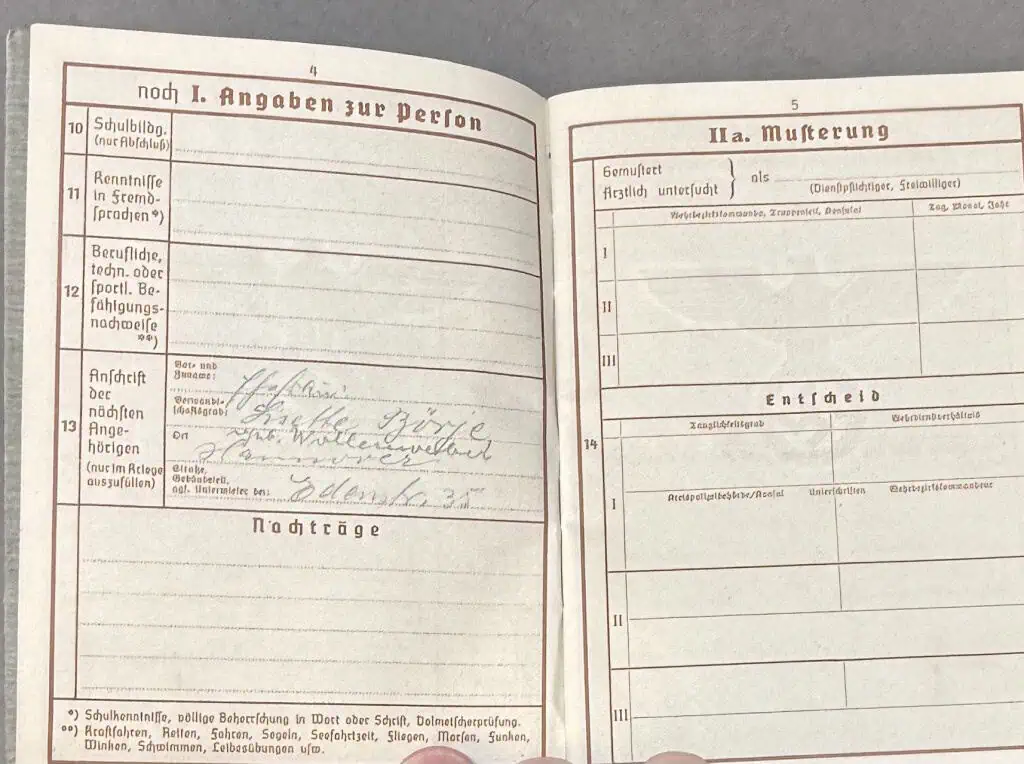 4
noch I. Angaben zur Person
10
Schulbildg.
(nur Abschluß)
11
Kenntnisse
in Fremd-
sprachen *)
12
Berufliche,
techn. oder
sportl. Be-
fähigungs-
nachweise
**)
13
Anschrift
der
nächsten
Ange-
hörigen
(nur im Kriege
auszufüllen)
Vor- und
Zuname:
Ehefrau:
Verwandt-
schaftsgrad:
Lisette Börje
geb. Wollenweber
Ort
Hannover
Straße,
Gebäudeteil,
ggf. Untermieter bei:
Edenstr. 35
Nachträge
*) Schulkenntnisse, völlige Beherrschung in Wort oder Schrift, Dolmetscherprüfung.
**) Kraftfahren, Reiten, Fahren, Segeln, Seefahrtzeit, Fliegen, Morsen, Funken,
Winken, Schwimmen, Leibesübungen usw.
5
IIa. Musterung
Gemustert
Ärztlich untersucht
als
(Dienstpflichtiger, Freiwilliger)
Wehrbezirkskommando, Truppenteil, Konsulat
Tag, Monat, Jahr
I
II
III
Entscheid
14
Tauglichkeitsgrad
Wehrdienstverhältnis
I
Kreispolizeibehörde/Konsul Unterschriften Wehrbezirkskommandeur
II
III